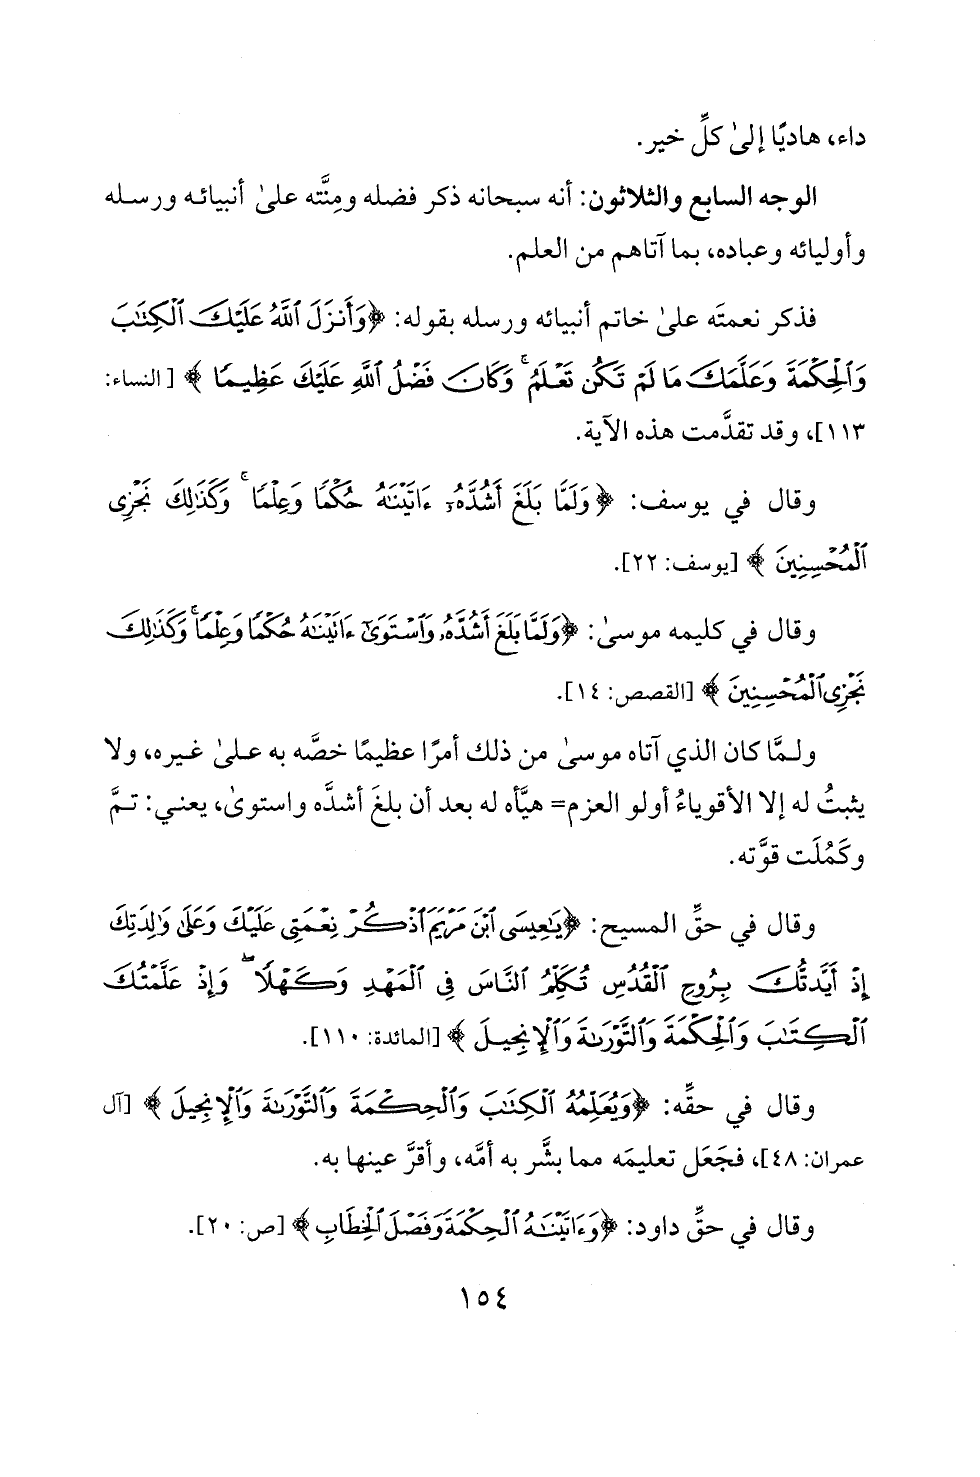 داء، هاديًا إلىٰ كلِّ خير.
الوجه السابع والثلاثون: أنه سبحانه ذكر فضله ومِنَّته علىٰ أنبيائه ورسله
وأوليائه وعباده، بما آتاهم من العلم.
فذكر نعمتَه علىٰ خاتم أنبيائه ورسله بقوله: ﴿وَأَنزَلَ ٱللَّهُ عَلَيْكَ ٱلْكِتَٰبَ
وَٱلْحِكْمَةَ وَعَلَّمَكَ مَا لَمْ تَكُن تَعْلَمُ ۚ وَكَانَ فَضْلُ ٱللَّهِ عَلَيْكَ عَظِيمًا﴾ [النساء:
١١٣]، وقد تقدَّمت هذه الآية.
وقال في يوسف: ﴿وَلَمَّا بَلَغَ أَشُدَّهُۥٓ ءَاتَيْنَٰهُ حُكْمًا وَعِلْمًا ۚ وَكَذَٰلِكَ نَجْزِى
ٱلْمُحْسِنِينَ﴾ [يوسف: ٢٢].
وقال في كليمه موسىٰ: ﴿وَلَمَّا بَلَغَ أَشُدَّهُۥ وَٱسْتَوَىٰٓ ءَاتَيْنَٰهُ حُكْمًا وَعِلْمًا ۚ وَكَذَٰلِكَ
نَجْزِى ٱلْمُحْسِنِينَ﴾ [القصص: ١٤].
ولمَّا كان الذي آتاه موسىٰ من ذلك أمرًا عظيمًا خصَّه به علىٰ غيره، ولا
يثبتُ له إلا الأقوياءُ أولو العزم= هيَّأه له بعد أن بلغَ أشدَّه واستوىٰ، يعني: تمَّ
وكَمُلَت قوَّته.
وقال في حقِّ المسيح: ﴿يَٰعِيسَى ٱبْنَ مَرْيَمَ ٱذْكُرْ نِعْمَتِى عَلَيْكَ وَعَلَىٰ وَٰلِدَتِكَ
إِذْ أَيَّدتُّكَ بِرُوحِ ٱلْقُدُسِ تُكَلِّمُ ٱلنَّاسَ فِى ٱلْمَهْدِ وَكَهْلًا ۖ وَإِذْ عَلَّمْتُكَ
ٱلْكِتَٰبَ وَٱلْحِكْمَةَ وَٱلتَّوْرَىٰةَ وَٱلْإِنجِيلَ﴾ [المائدة: ١١٠].
وقال في حقِّه: ﴿وَيُعَلِّمُهُ ٱلْكِتَٰبَ وَٱلْحِكْمَةَ وَٱلتَّوْرَىٰةَ وَٱلْإِنجِيلَ﴾ [آل
عمران: ٤٨]، فجَعَل تعليمَه مما بشَّر به أمَّه، وأقرَّ عينها به.
وقال في حقِّ داود: ﴿وَءَاتَيْنَٰهُ ٱلْحِكْمَةَ وَفَصْلَ ٱلْخِطَابِ﴾ [ص: ٢٠].
١٥٤